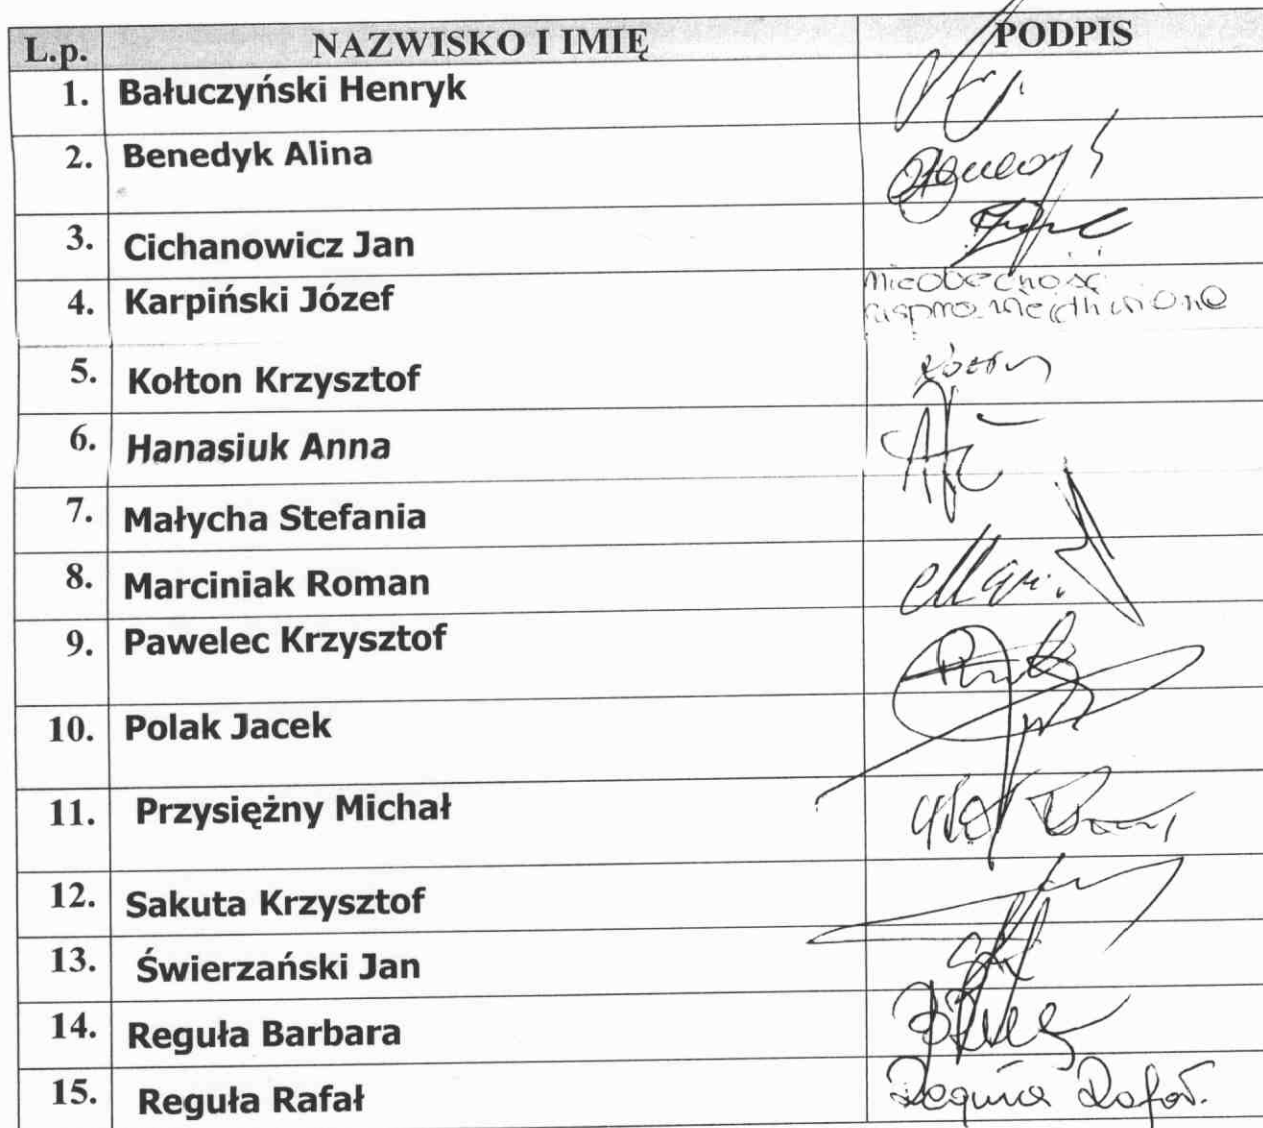 L.p. NAZWISKO I IMIĘ PODPIS
1. Bałuczyński Henryk
2. Benedyk Alina
3. Cichanowicz Jan
4. Karpiński Józef nieobecność
usprawiedliwiona
5. Kołton Krzysztof
6. Hanasiuk Anna
7. Małycha Stefania
8. Marciniak Roman
9. Pawelec Krzysztof
10. Polak Jacek
11. Przysiężny Michał
12. Sakuta Krzysztof
13. Świerzański Jan
14. Reguła Barbara
15. Reguła Rafał Reguła Rafał.